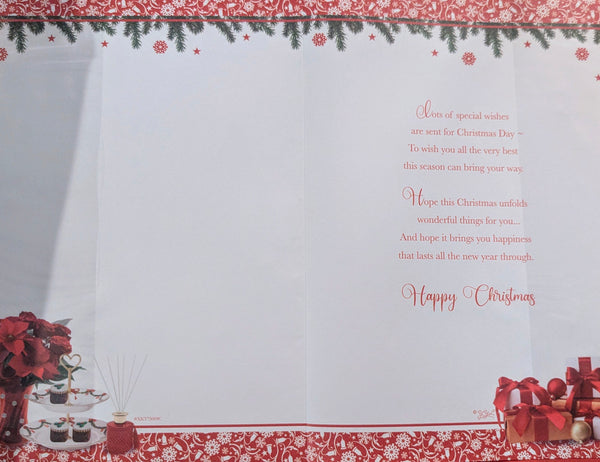 Lots of special wishes
are sent for Christmas Day ~
To wish you all the very best
this season can bring your way.
Hope this Christmas unfolds
wonderful things for you...
And hope it brings you happiness
that lasts all the new year through.
Happy Christmas